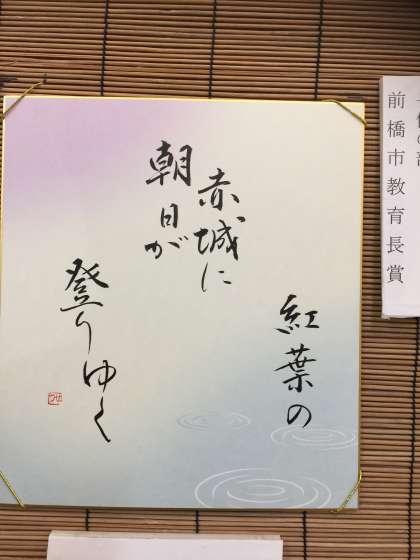 前橋市教育長賞
紅葉の
赤城に
朝日が
登りゆく